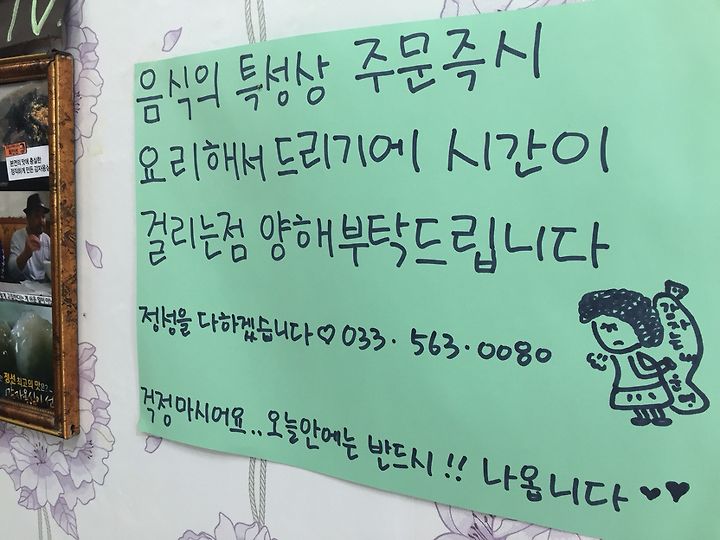 음식의 특성상 주문즉시
요리해서 드리기에 시간이
걸리는점 양해부탁드립니다
정성을 다하겠습니다♡ 033. 563. 0080
걱정마시어요.. 오늘안에는 반드시!! 나옵니다 ♥♥
정선 최고의 맛